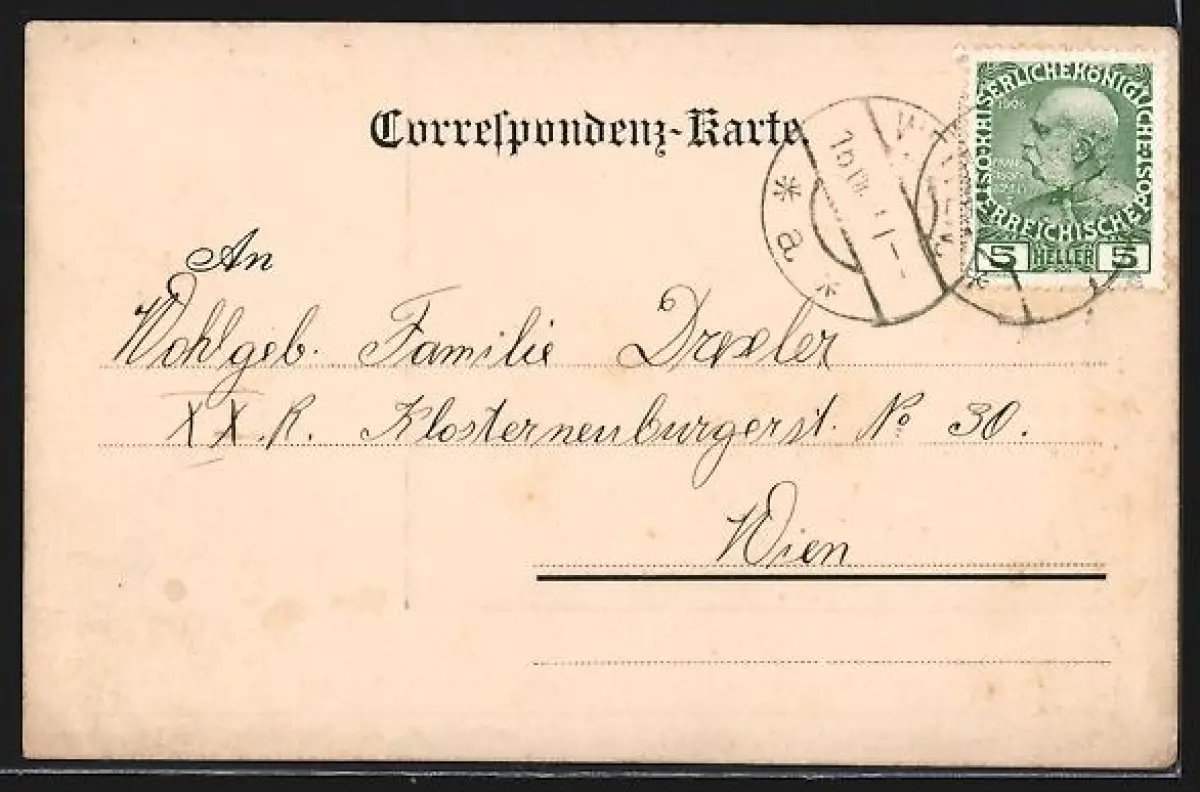 Correspondenz-Karte.
KAISERLICHE KÖNIGLICHE ÖSTERREICHISCHE POST
1908
FRANZ
JOSEPH I
5 HELLER 5
* a *
An
Wohlgeb. Familie Drexler
XX. R. Klosterneuburgerst. No 30.
Wien